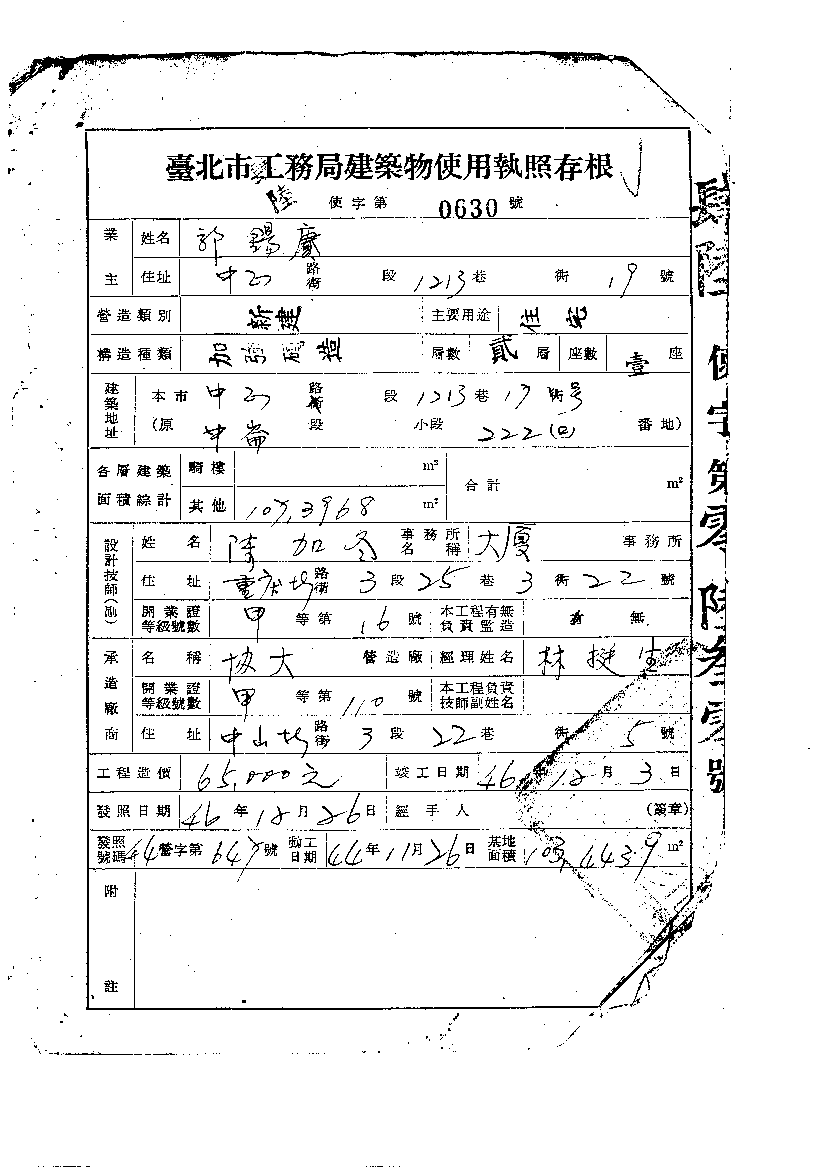 臺北市工務局建築物使用執照存根
陸 使字第 0630 號
業主 姓名 郭錫
住址 中正 路街 段 1213 巷 街 19 號
營造類別 新建 主要用途 住宅
構造種類 加強磚造 層數 貳 層 座數 壹 座
建築地址 本市 中正 路街 段 1213 巷 17 號
(原 中崙 段 小段 222 番地)
各層建築面積綜計 騎樓 m² 合計 m²
其他 m²
設計技師(副) 姓名 陳加冬 事務所名稱 大廈 事務所
住址 重慶北 路街 3 段 25 巷 3 街 22 號
開業證等級號數 甲 等第 16 號 本工程有無負責監造 無
承造廠商 名稱 協大 營造廠 經理姓名 林挺生
開業證等級號數 甲 等第 110 號 本工程負責技師副姓名
住址 中山北 路街 3 段 22 巷 街 5 號
工程造價 65,000元 竣工日期 46年12月3日
發照日期 46年12月26日 經手人 (簽章)
發照號碼 44 營字第 號 動工日期 44年11月26日 基地面積 m²
附註
肆陸 使字第零陸叁零號